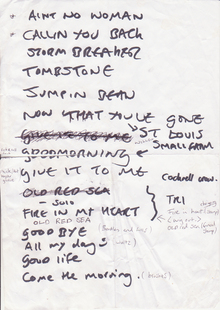 AINT NO WOMAN
CALLIN YOU BACK
STORM BREAKER
TOMBSTONE
JUMPIN BEAN
NOW THAT YOU'VE GONE
GIVE IT TO ME ST LOUIS
GOODMORNING SMALL FARM
GIVE IT TO ME Cockrell crow.
OLD RED SEA
- SOLO TRI
FIRE IN MY HEART
OLD RED SEA
GOOD BYE
All my days
Good life
Come the morning.